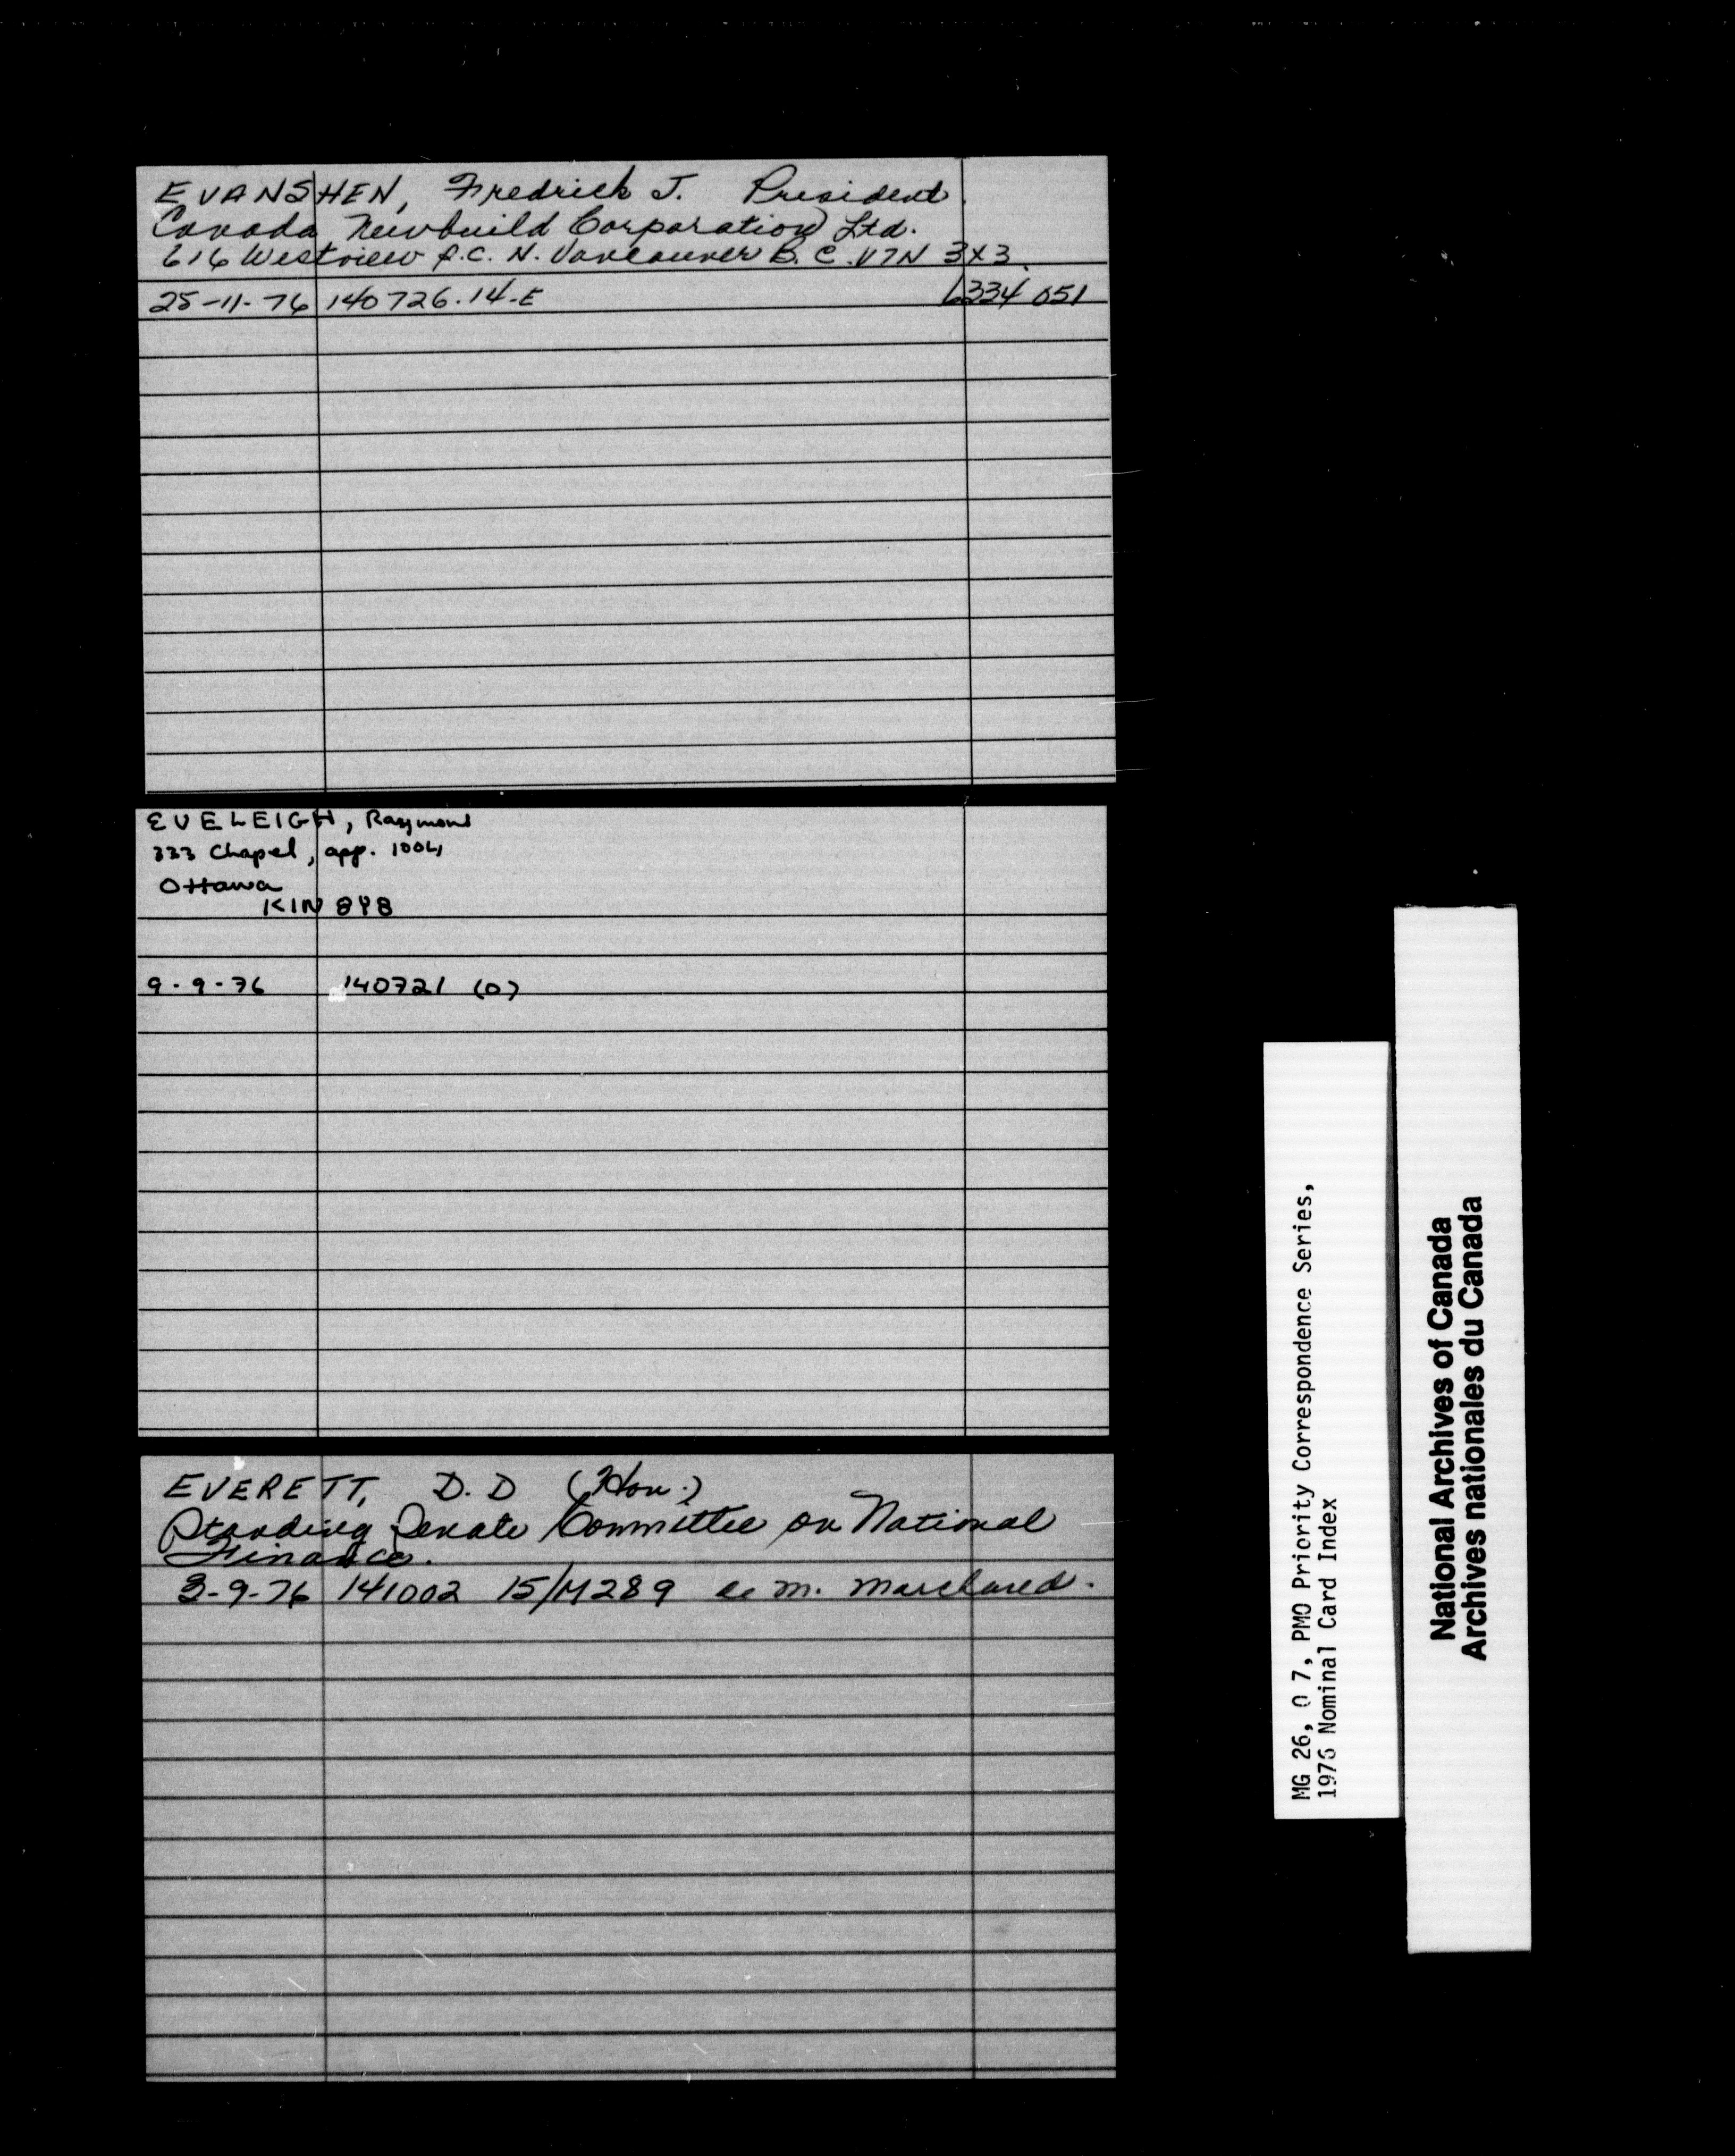 EVANSHEN, Fredrick J. President.
Canada Newbuild Corporation Ltd.
616 Westview P.C. N. Vancouver B.C. V7N 3X3.
25-11-76 140726.14-E 6334 051
EVELEIGH, Raymond
333 Chapel, app. 1004
Ottawa
K1N 8Y8
9-9-76 140721 (O)
EVERETT, D.D (Hon.)
Standing Senate Committee on National
Finance.
3-9-76 141002 15/M289 M. Marchand.
MG 26, O 7, PMO Priority Correspondence Series,
1976 Nominal Card Index
National Archives of Canada
Archives nationales du Canada